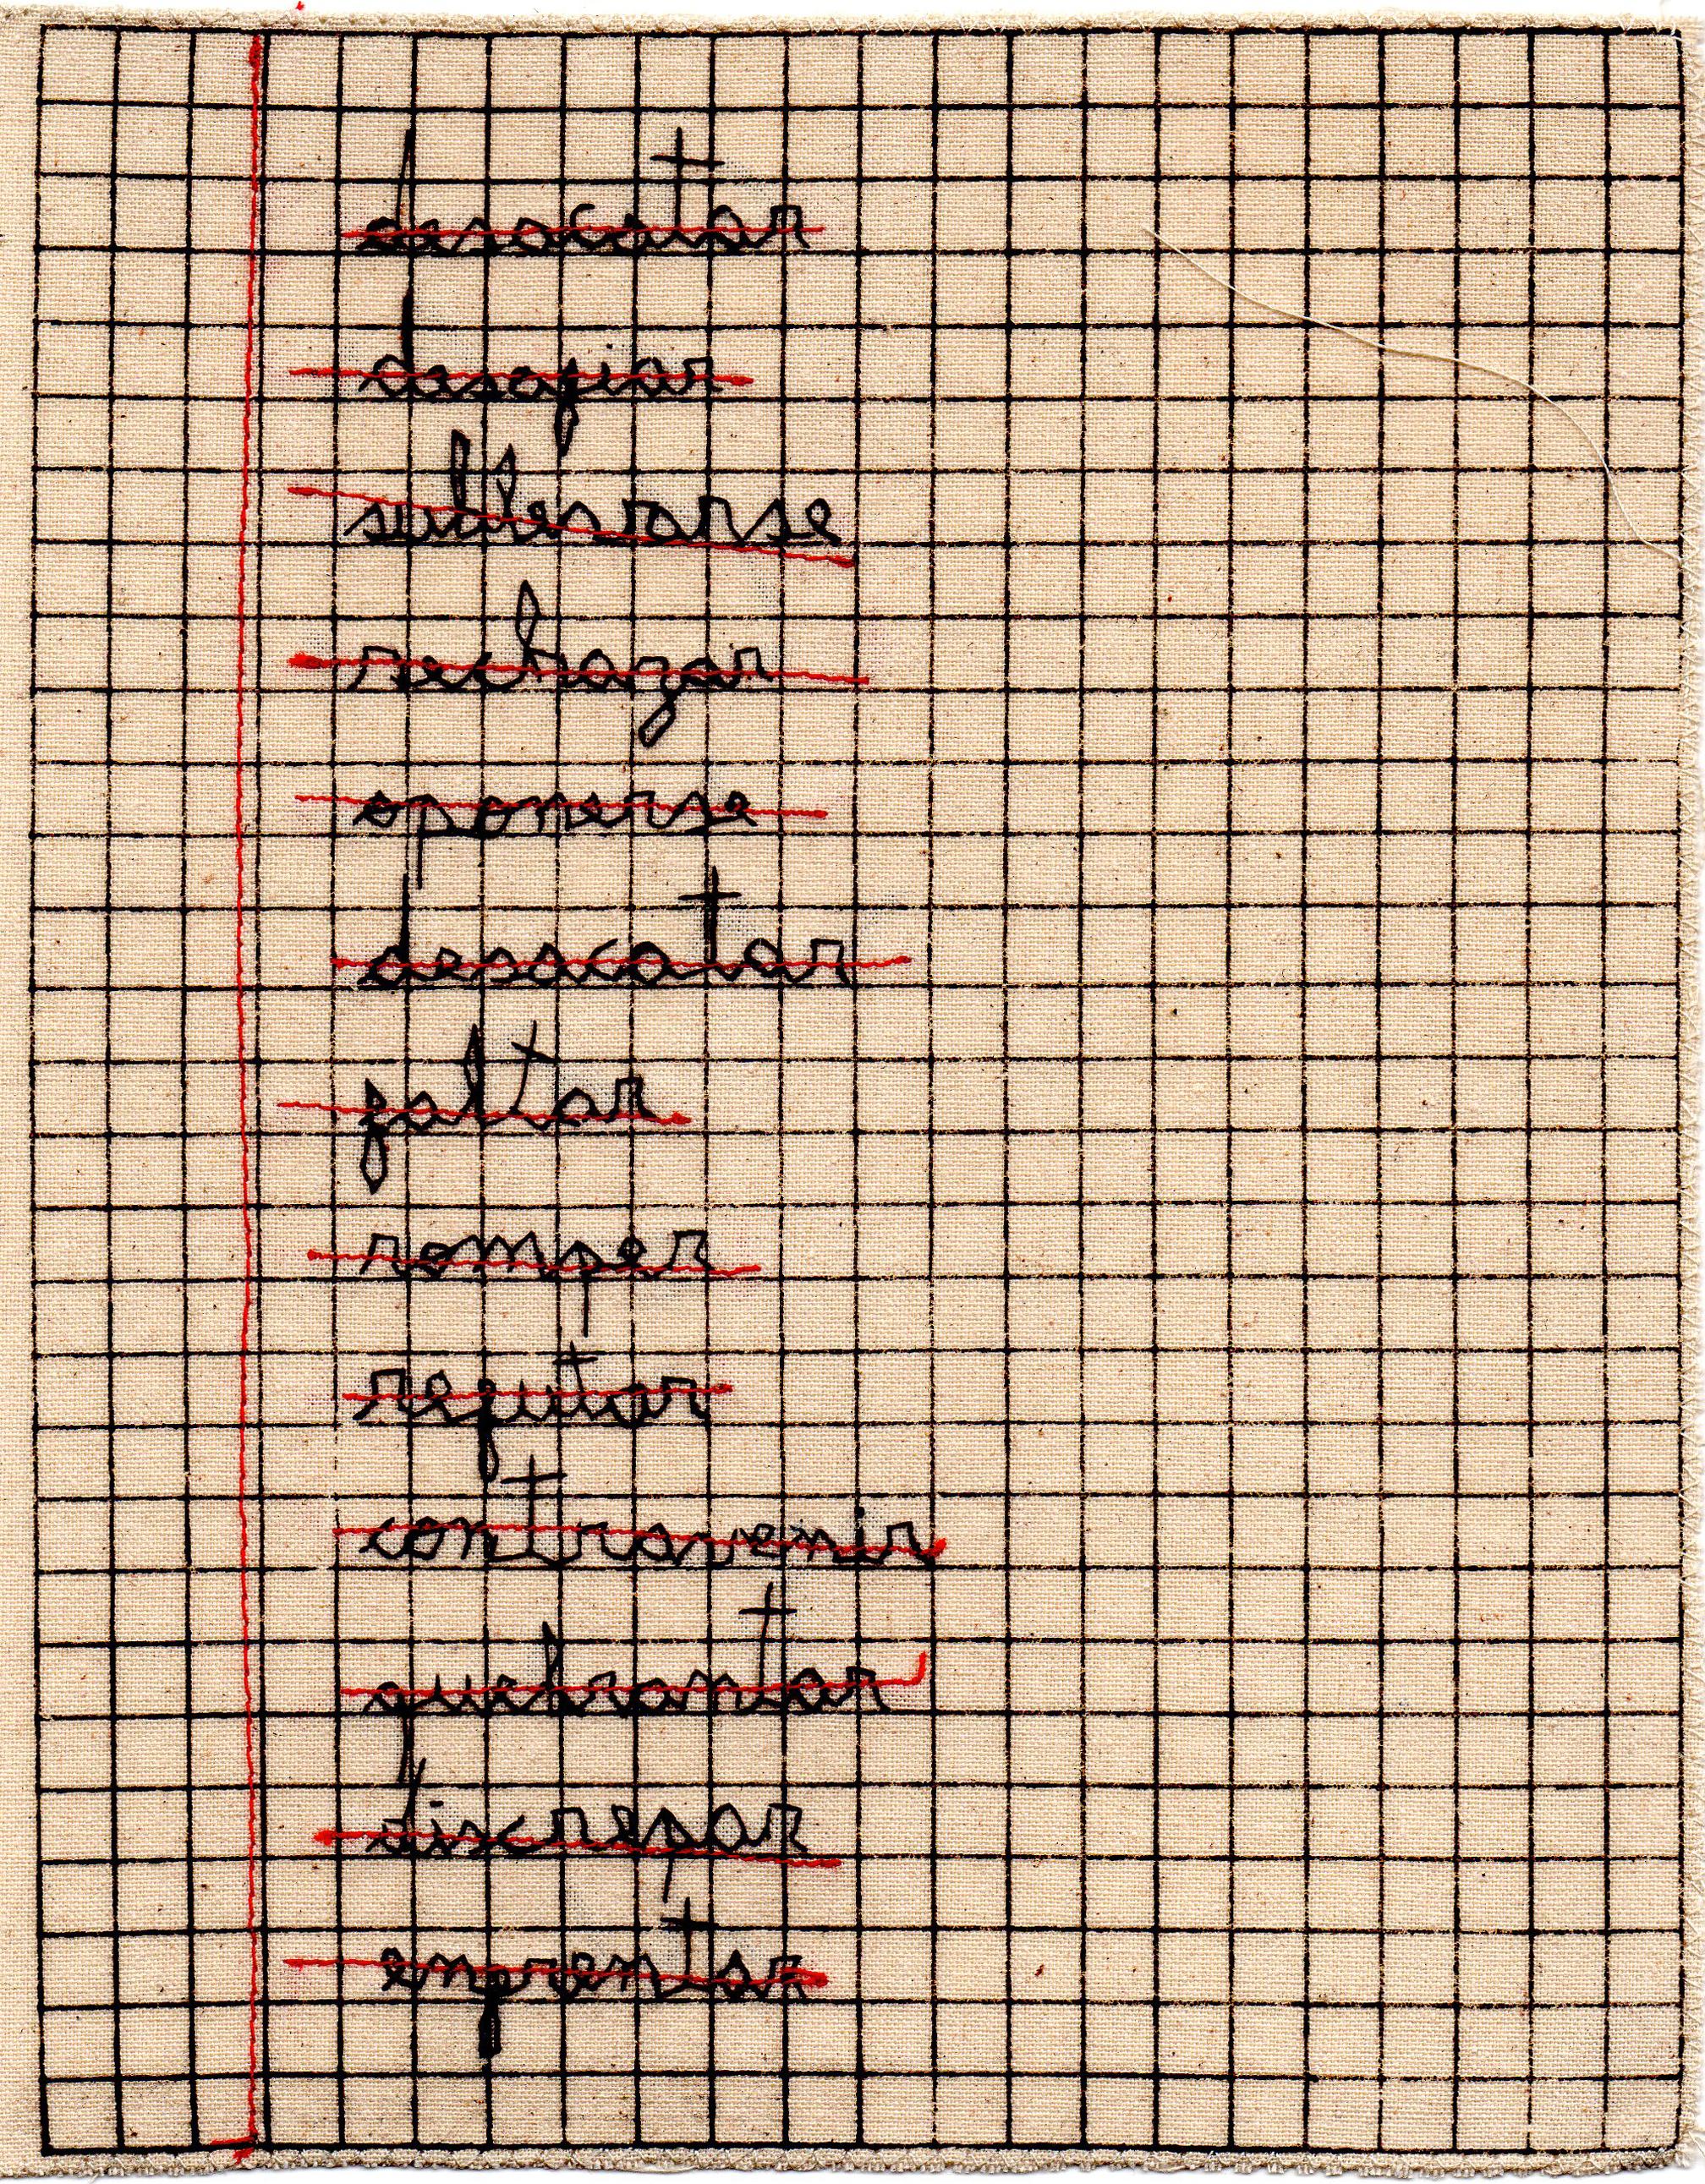 desacatar
desafiar
sublevarse
rechazar
oponerse
desacatar
faltar
romper
refutar
contravenir
quebrantar
discrepar
enfrentar